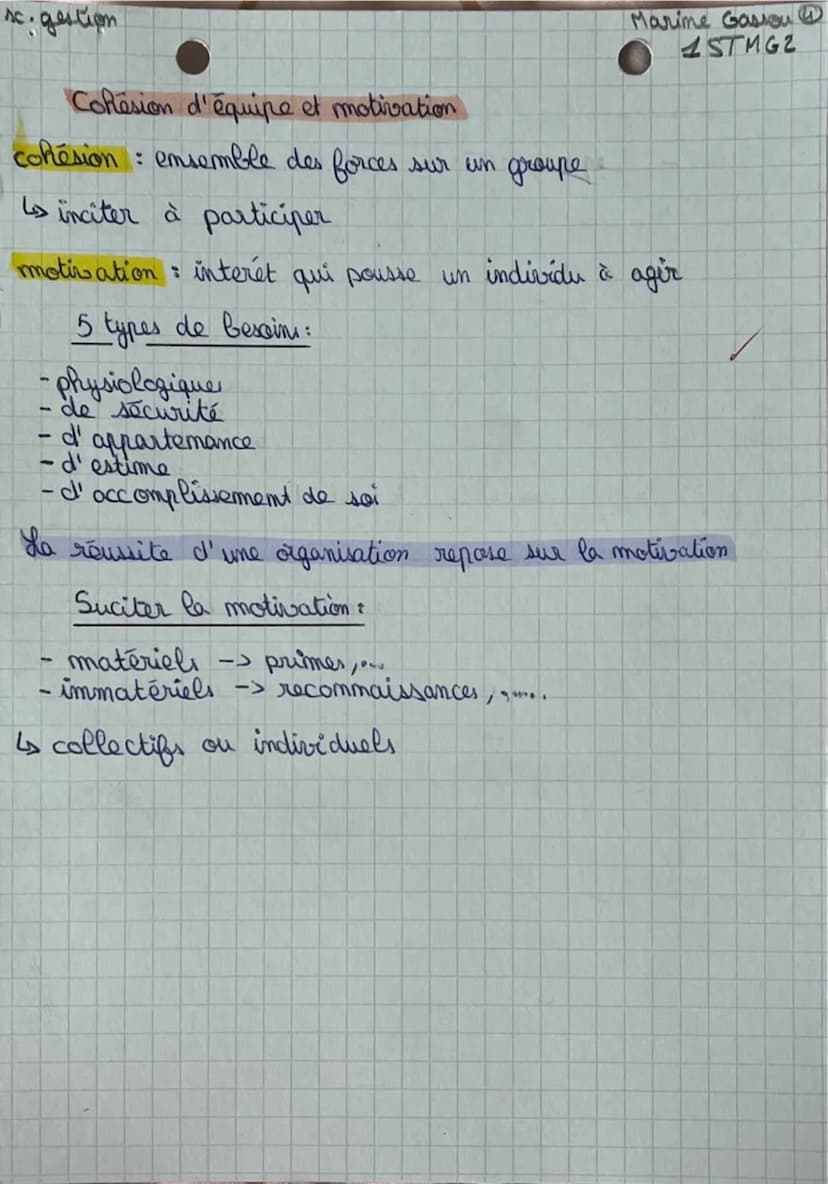 sc. gestion
Marine Gassou ①
1STMG2
Cohésion d'équipe et motivation
cohésion : ensemble des forces sur un groupe
↳ inciter à participer
motivation : interêt qui pousse un individu à agir
5 types de besoins :
- physiologiques
- de sécurité
- d'appartenance
- d'estime
- d'accomplissement de soi
La réussite d'une organisation repose sur la motivation
Suciter la motivation :
- matériels -> primes,...
- immatériels -> reconnaissances, .....
↳ collectifs ou individuels